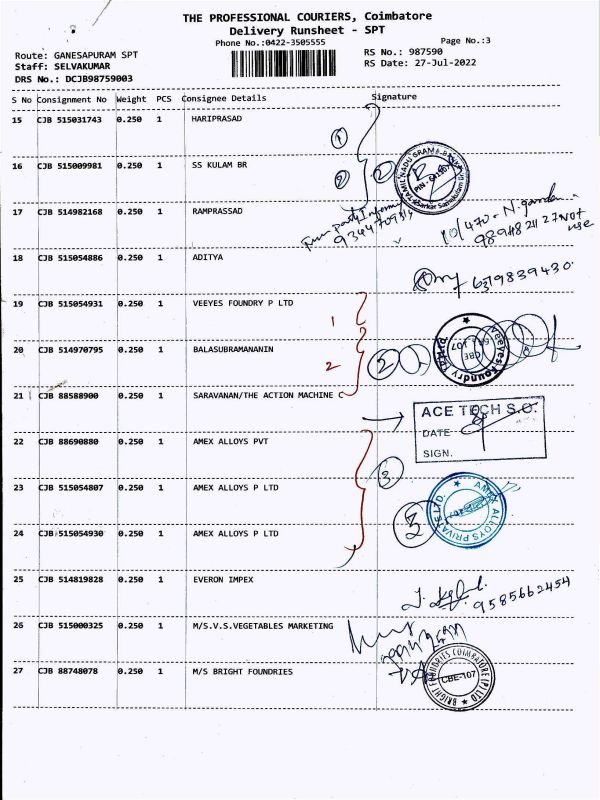 THE PROFESSIONAL COURIERS, Coimbatore
Delivery Runsheet - SPT
Phone No.:0422-3505555
Page No.:3
Route: GANESAPURAM SPT
RS No.: 987590
Staff: SELVAKUMAR
RS Date: 27-Jul-2022
DRS No.: DCJB98759003
S No Consignment No Weight PCS Consignee Details Signature
15 CJB 515031743 0.250 1 HARIPRASAD
16 CJB 515009981 0.250 1 SS KULAM BR
TAMILNADU GRAMA BANK
17 CJB 514982168 0.250 1 RAMPRASSAD
18 CJB 515054886 0.250 1 ADITYA
6379839430
19 CJB 515054931 0.250 1 VEEYES FOUNDRY P LTD
1
20 CJB 514970795 0.250 1 BALASUBRAMANANIN
2 2
Veeyes Foundry (P) Ltd. CBE 107
21 CJB 88588900 0.250 1 SARAVANAN/THE ACTION MACHINE C
ACE TECH S.O.
DATE
SIGN.
22 CJB 88690880 0.250 1 AMEX ALLOYS PVT
3
23 CJB 515054807 0.250 1 AMEX ALLOYS P LTD
AMEX ALLOYS PRIVATE LTD.
24 CJB 515054930 0.250 1 AMEX ALLOYS P LTD
3
25 CJB 514819828 0.250 1 EVERON IMPEX
9585662454
26 CJB 515000325 0.250 1 M/S.V.S.VEGETABLES MARKETING
27 CJB 88748078 0.250 1 M/S BRIGHT FOUNDRIES
BRIGHT FOUNDRIES COIMBATORE (P) LTD
CBE-107